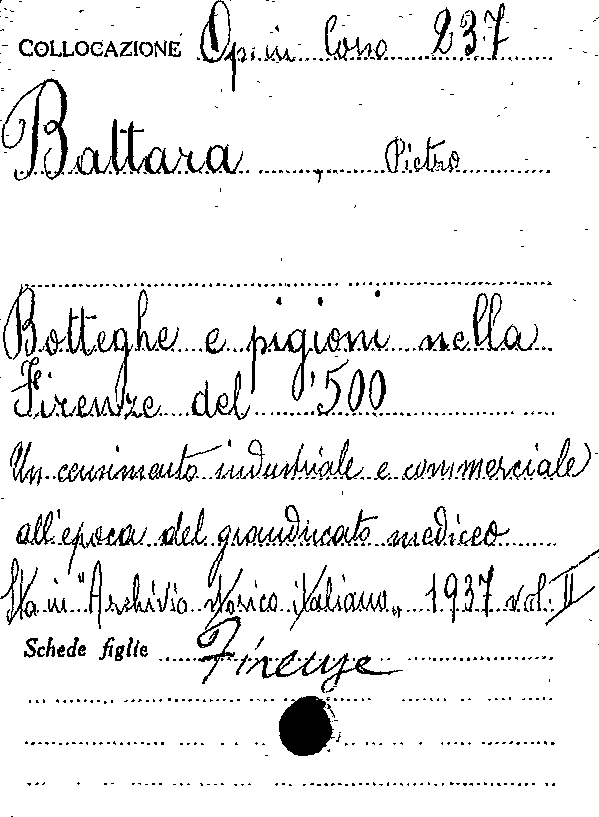 COLLOCAZIONE Op. in Cons 237
Battara , Pietro
Botteghe e pigioni nella
Firenze del '500
Un censimento industriale e commerciale
all'epoca del granducato mediceo
Sta in "Archivio storico italiano" 1937 vol. II
Schede figlie Firenze